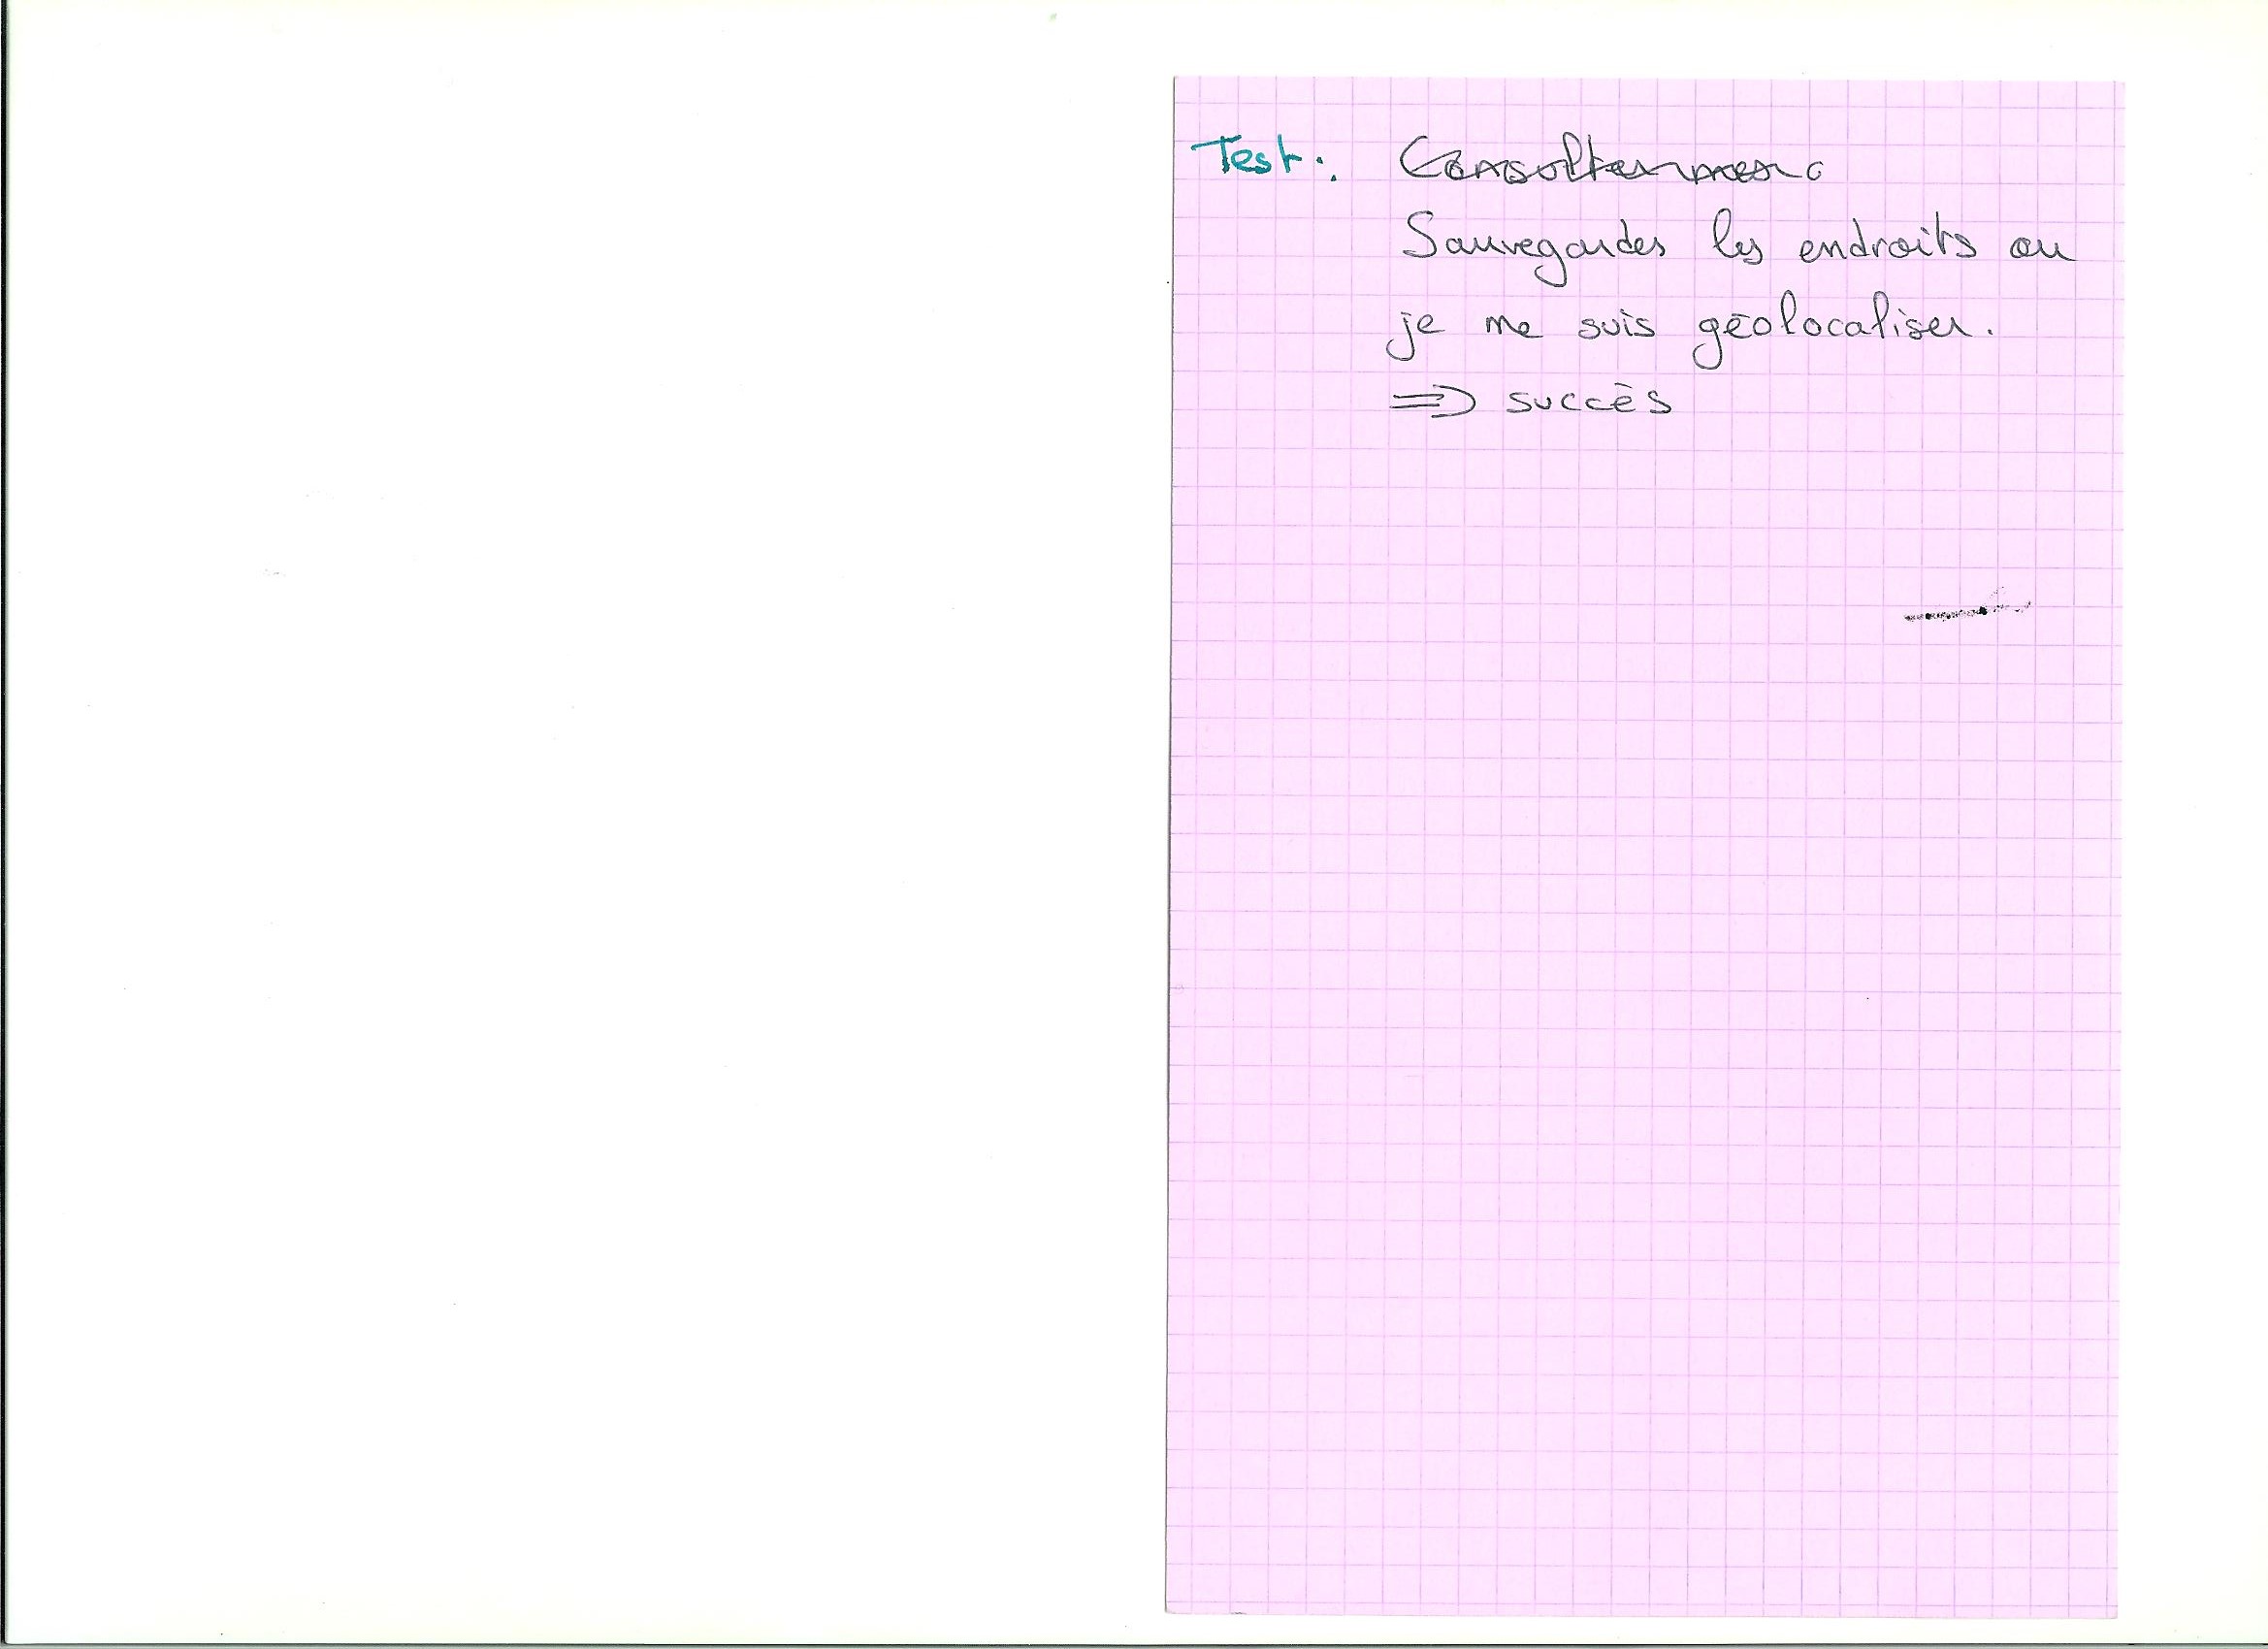 Test : Consulter mes c
Sauvegardes les endroits ou
je me suis géolocaliser.
=> succès